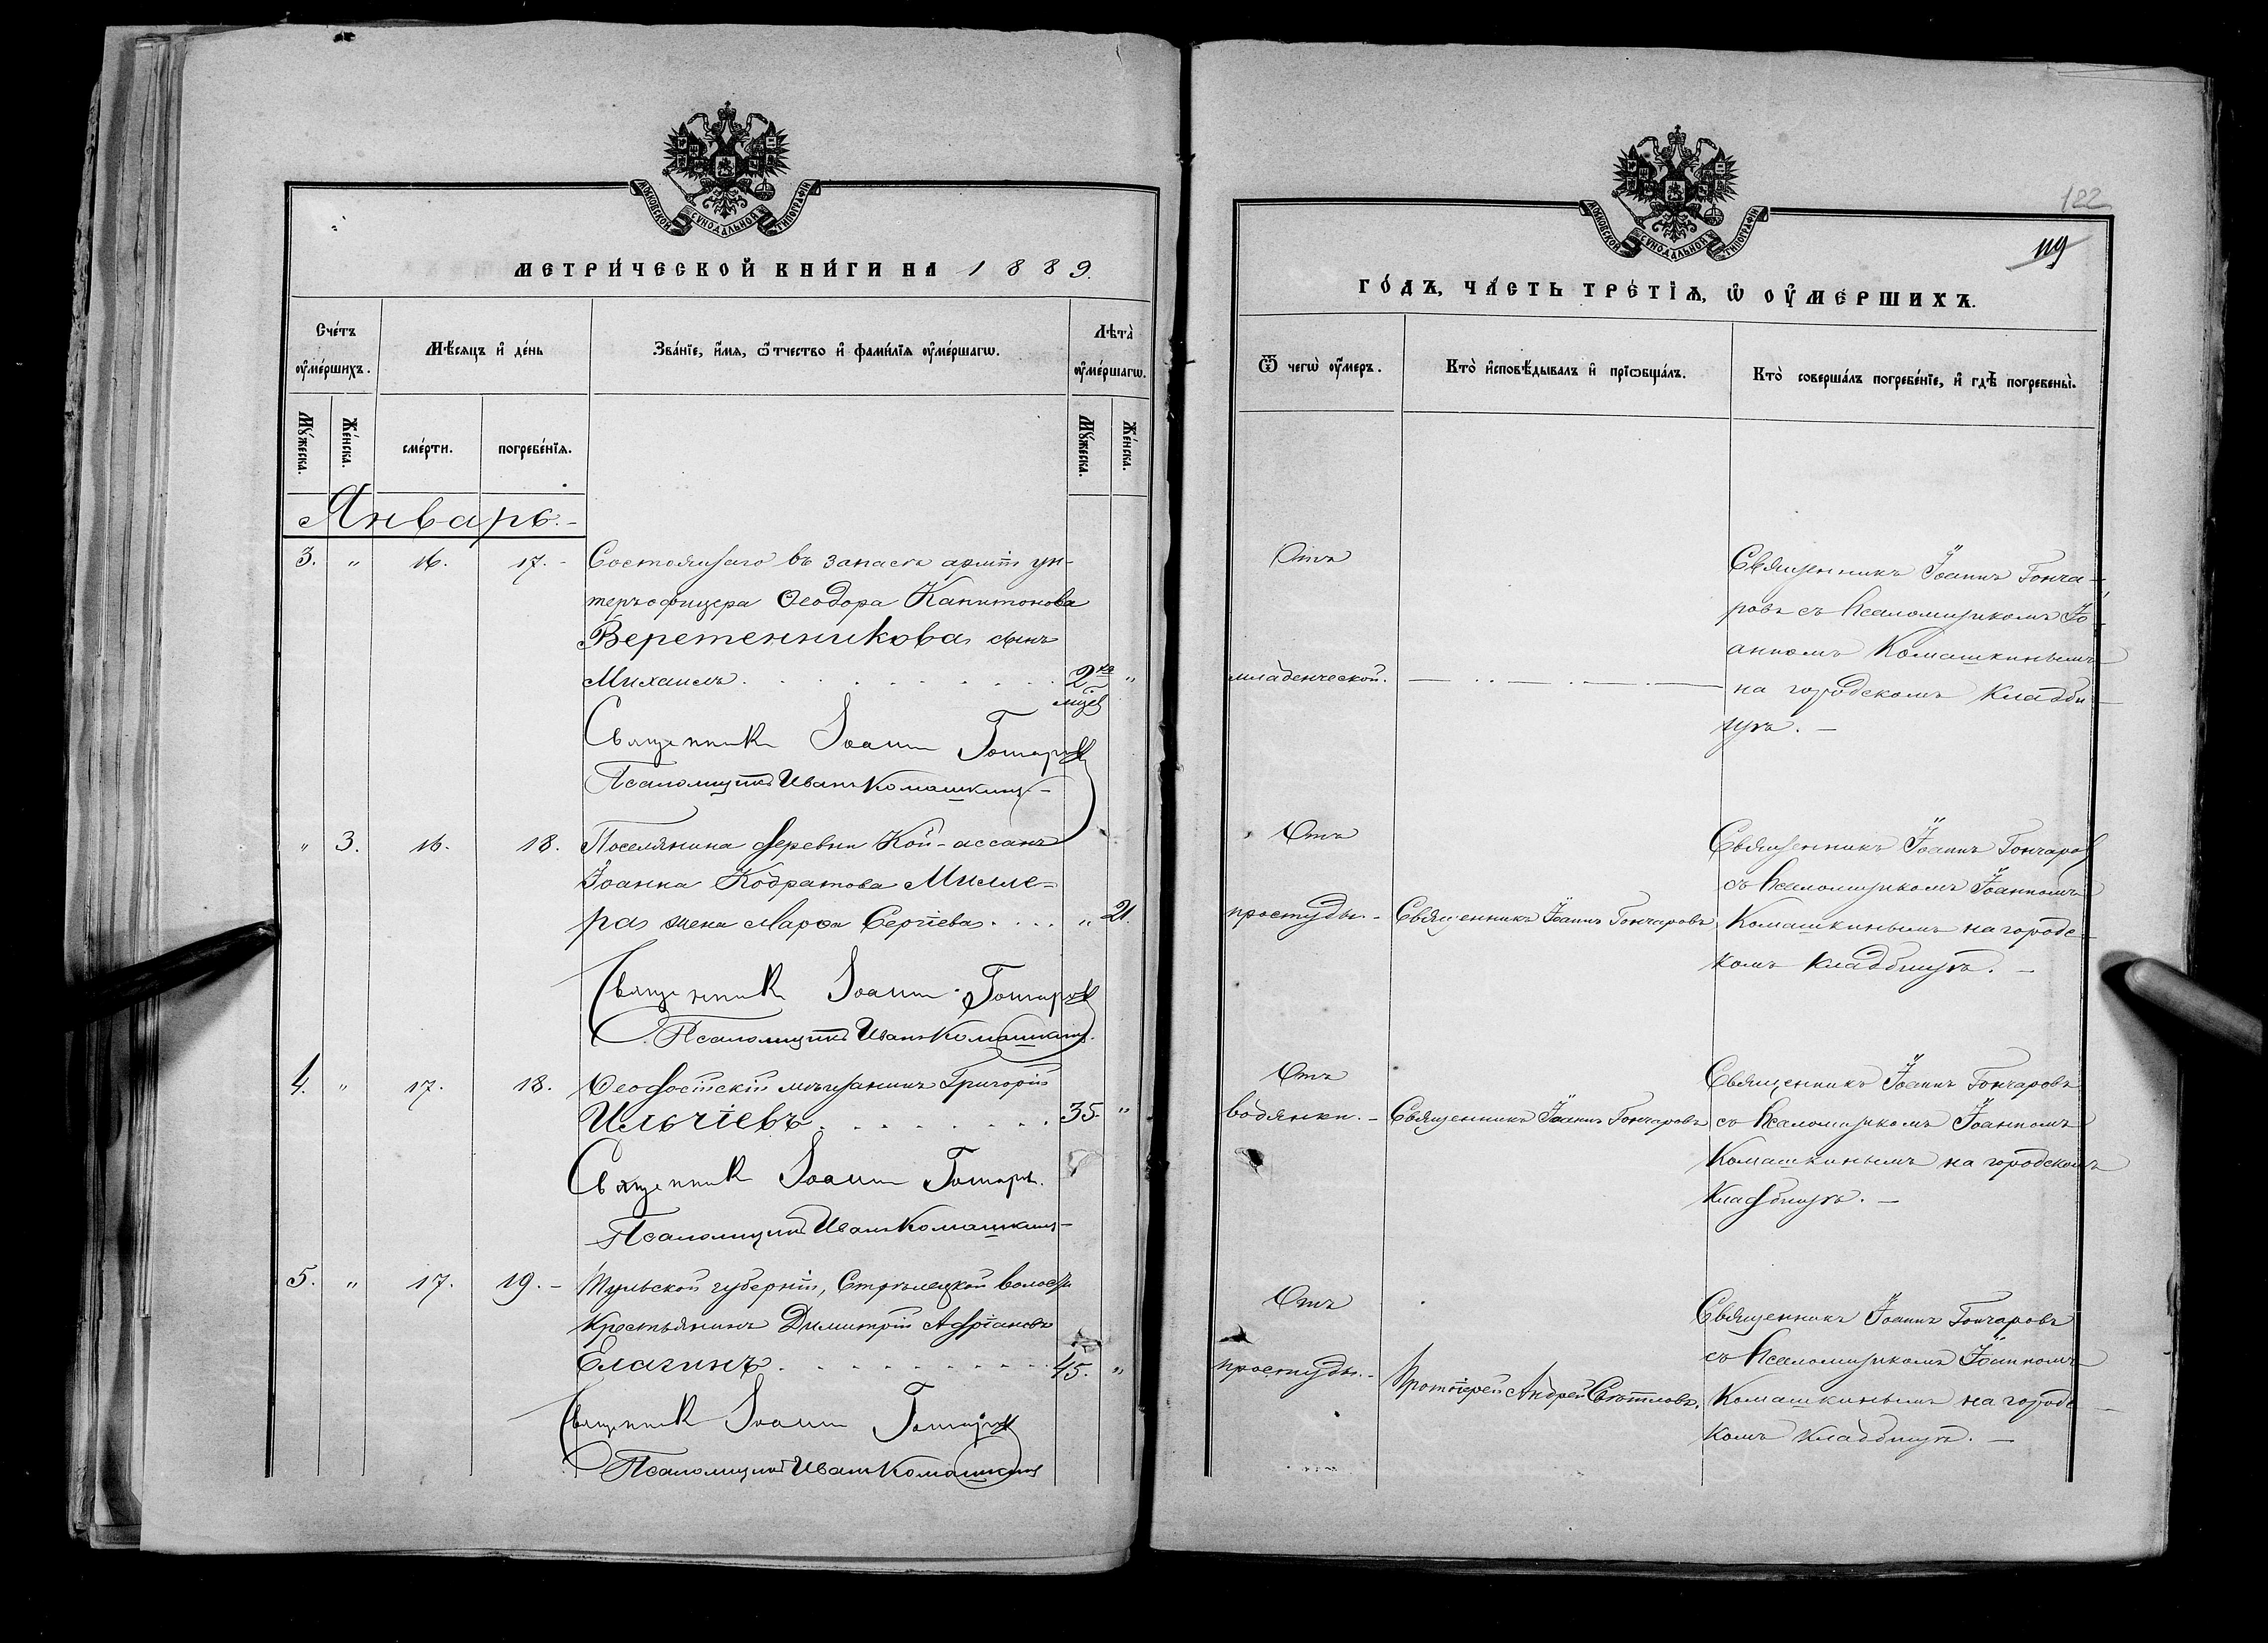 МОСКОВСКОЙ СѴНОДАЛЬНОЙ ТИПОГРАФІИ
МЕТРИ́ЧЕСКОЙ КНИ́ГИ НА 1889.
Сче́тъ ᲂу҆ме́ршихъ.
Мѣ́сяцъ и҆ де́нь
Зва́нїе, и҆́мя, ѻ҆́тчество и҆ фами́лїя ᲂу҆ме́ршагѡ.
Лѣта̀ ᲂу҆ме́ршагѡ.
Мꙋ́жеска.
Же́нска.
сме́рти.
погребе́нїѧ.
Мꙋ́жеска.
Же́нска.
Январь.-
3. " 16. 17.- Состоящаго въ запасѣ арміи ун-
теръ-офицера Ѳеодора Капитонова
Веретенникова сынъ
Михаилъ . . . . . . . . . 2 мцев "
Священникъ Іоаннъ Гончаровъ
Псаломщикъ Иванъ Комашкинъ-
" 3. 16. 18. Поселянина деревни Кой-ассанъ
Іоанна Кодратова Милле=
ра жена Марѳа Сергіева . . . . " 21.
Священникъ Іоаннъ Гончаровъ
Псаломщикъ Иванъ Комашкинъ.
4. " 17. 18. Ѳеодосійскій мѣщанинъ Григорій
Ильчіевъ . . . . . . . . 35. "
Священникъ Іоаннъ Гончаръ.
Псаломщикъ Иванъ Комашкинъ-
5. " 17. 19.- Тульской губерніи, Стрѣлецкой волости
крестьянинъ Димитрій Адріановъ
Елагинъ . . . . . . . . . 45. "
Священникъ Іоаннъ Гончаровъ
Псаломщикъ Иванъ Комашкинъ
122
119
МОСКОВСКОЙ СѴНОДАЛЬНОЙ ТИПОГРАФІИ
ГО́ДЪ, ЧА́СТЬ ТРЕ́ТЇѦ, Ѡ҆ ОУ҆МЕ́РШИХЪ.
Ѿ чегѡ̀ ᲂу҆́меръ.
Кто̀ и҆сповѣ́дывалъ и҆ прїѡбща́лъ.
Кто̀ соверша́лъ погребе́нїе, и҆ гдѣ̀ погребены̀.
Отъ
младенческой. — .. — . — . —
Священникъ Іоаннъ Гонча-
ровъ съ псаломщикомъ Іо-
анномъ Комашкинымъ
на городскомъ кладби-
щѣ. —
Отъ
простуды.-
Священникъ Іоаннъ Гончаровъ
Священникъ Іоаннъ Гончаров
съ псаломщикомъ Іоанномъ
Комашкинымъ на городс-
комъ кладбищѣ. —
Отъ
водянки.-
Священникъ Іоаннъ Гончаровъ
Священникъ Іоаннъ Гончаровъ
съ псаломщикомъ Іоанномъ
Комашкинымъ на городскомъ
кладбищѣ. —
Отъ
простуды.-
Протоіерей Андрей Свѣтловъ.
Священникъ Іоаннъ Гончаровъ
съ псаломщикомъ Іоанномъ
Комашкинымъ на городс-
комъ кладбищѣ. —